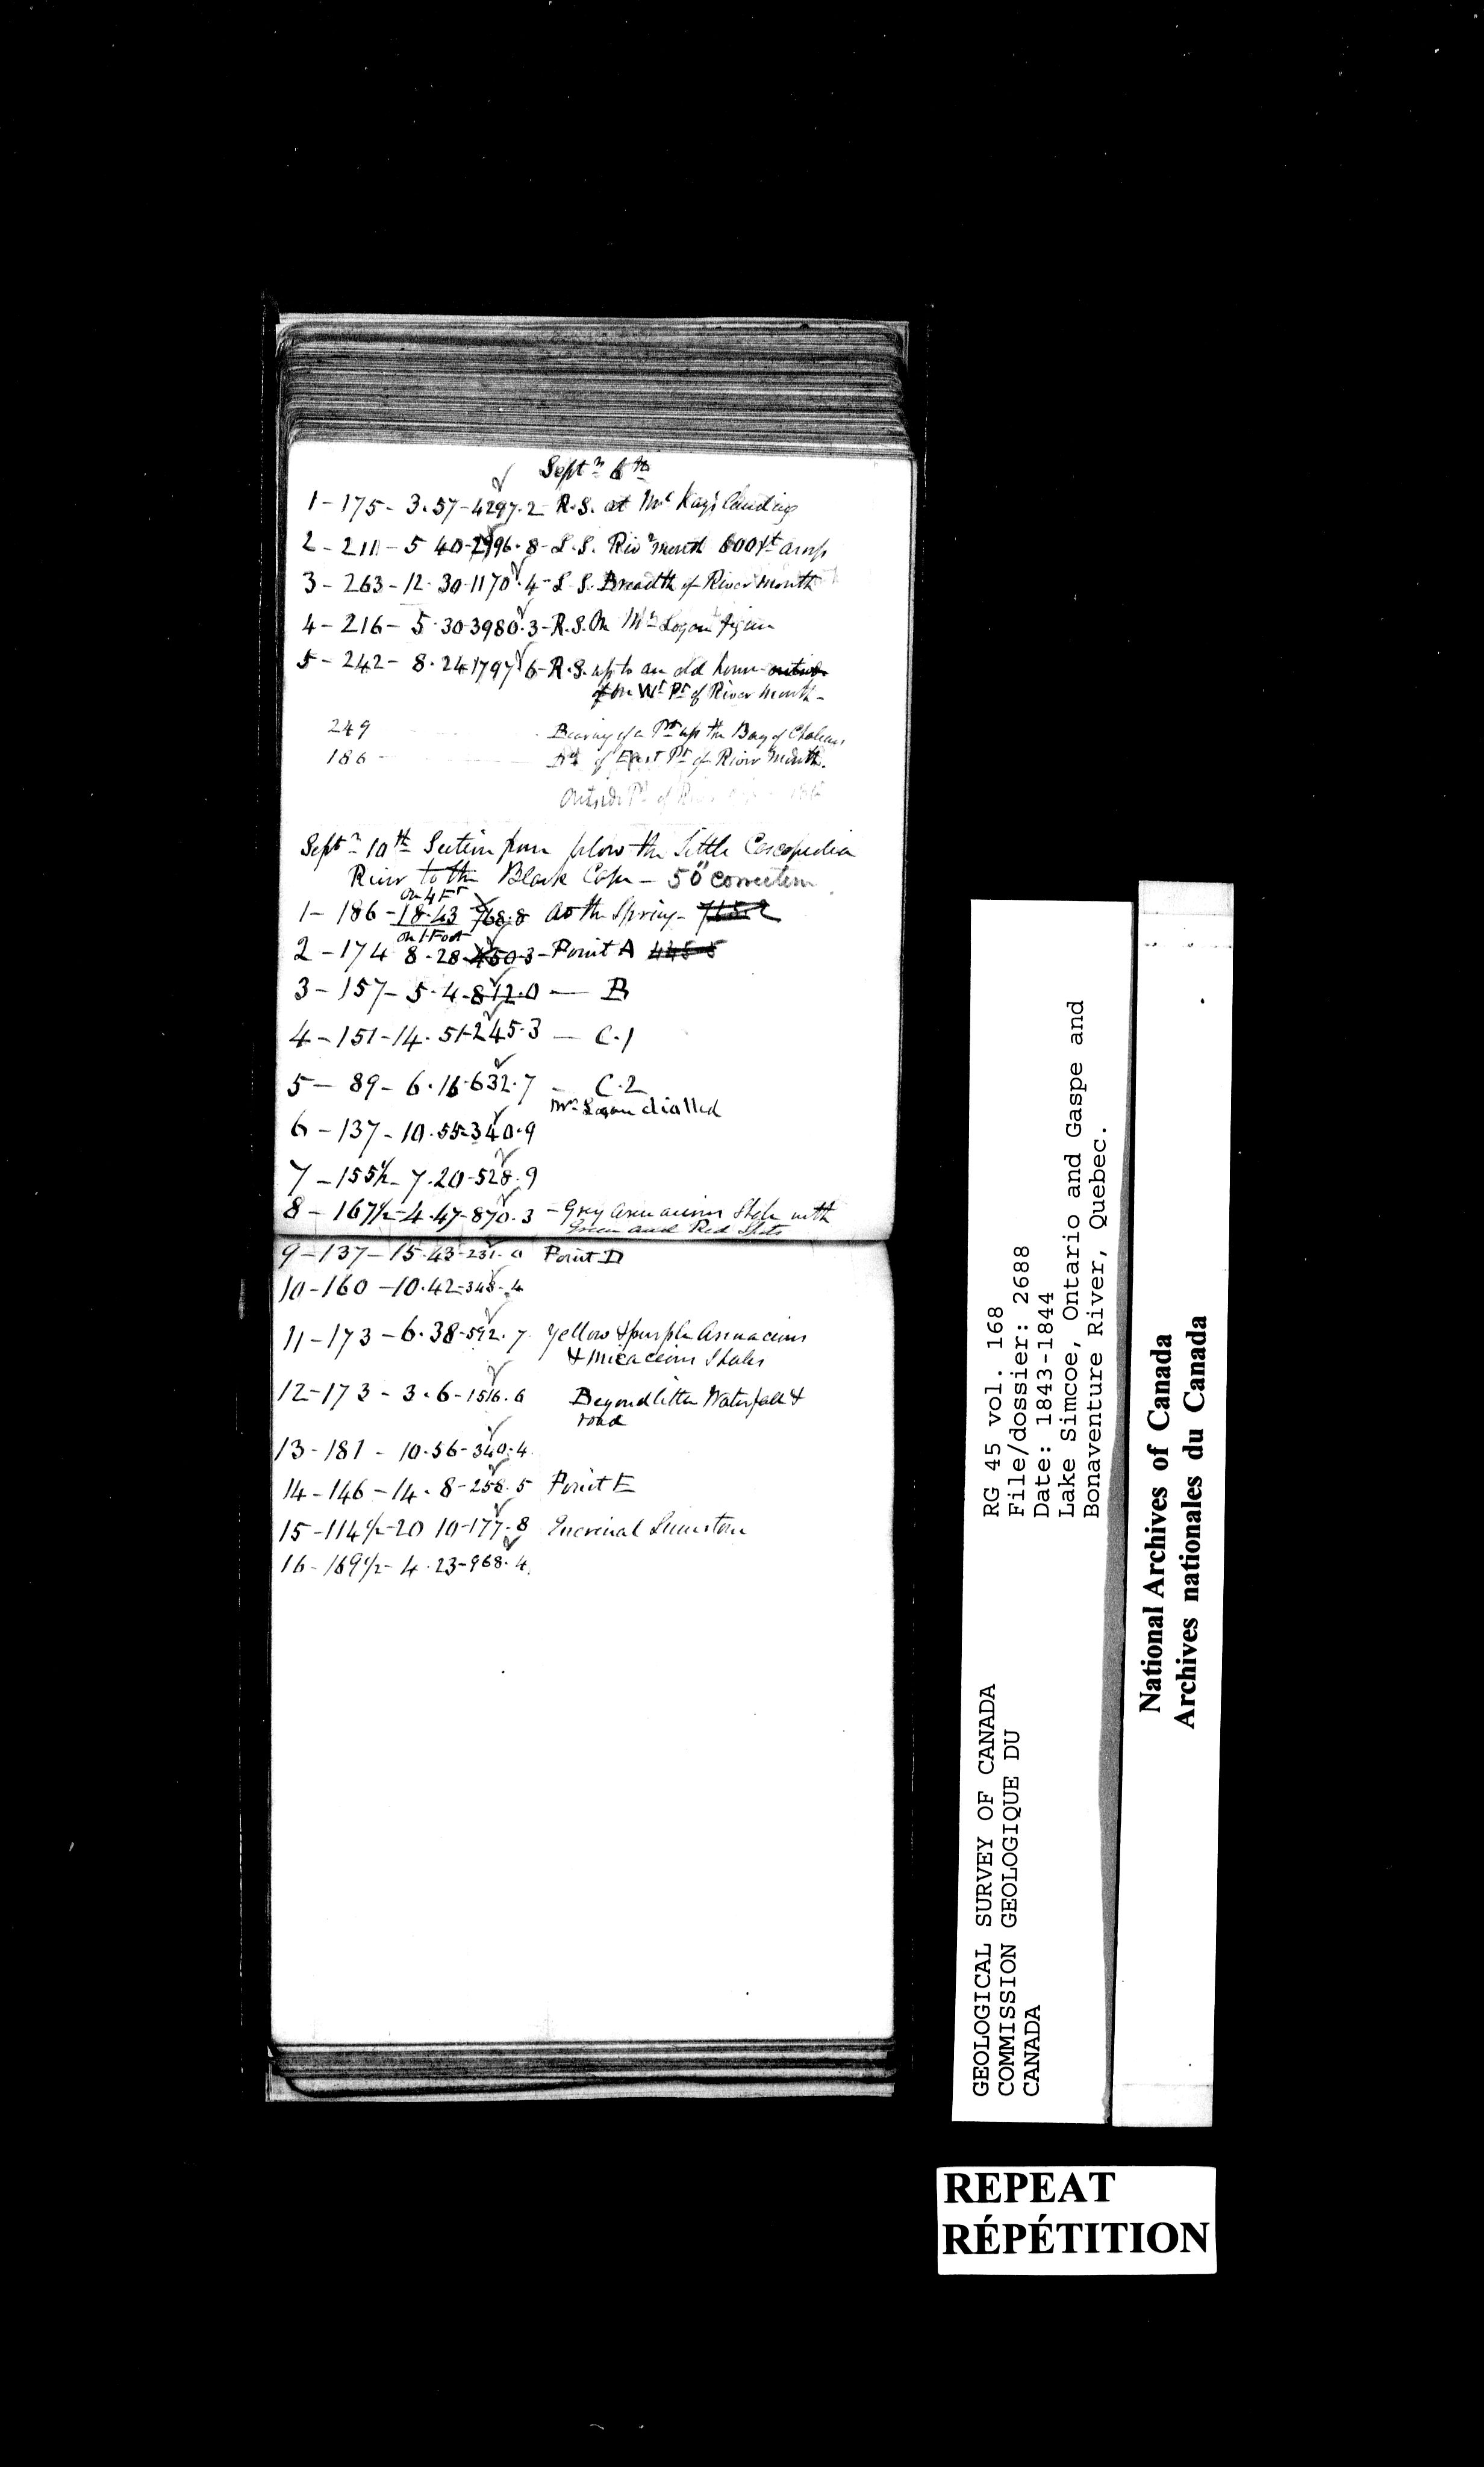 Septr 6th
1 - 175 - 3.57 - 4297.2 R.S. at McKay's Landing
2 - 211 - 5 40 - 2996.8 - L.S. Rivr mouth 600 ft
3 - 263 - 12.30 - 1170.4 - L.S. Breadth of River mouth
4 - 216 - 5.30 - 3980.3 - R.S. Mr Logan
5 - 242 - 8.24 1797.6 - R.S. up to an old house
on Wt Pt of River mouth -
249 Bearing of a Pt up the Bay of Chaleurs
186 - Do of East Pt of River Mouth.
Outside Pt of
Septr 10th Section from below the Little Cascapedia
River to the Black Cape - 50" correction
on 4 Ft
1 - 186 - 18.43 768.8 At the Spring -
on 1 Foot
2 - 174 8.28 - 450.3 - Point A
3 - 157 - 5.4 - 812.0 — B
4 - 151 - 14.51 - 245.3 — C.1
5 - 89 - 6.16 - 632.7 - C.2
Mr Logan dialled
6 - 137 - 10.55 - 340.9
7 - 155½ - 7.20 - 528.9
8 - 167½ - 4.47 - 870.3 - Grey Arenaceous Shale with
Green and Red Spots
9 - 137 - 15.43 - 231.0 Point D
10 - 160 - 10.42 - 348.4
11 - 173 - 6.38 - 592.7 Yellow & purple Arenaceous
& Micaceous Shales
12 - 173 - 3.6 - 1516.6 Beyond little Waterfall &
road
13 - 181 - 10.56 - 340.4
14 - 146 - 14.8 - 258.5 Point E
15 - 114½ - 20 10 - 177.8 Encrinal Limestone
16 - 169½ - 4.23 - 968.4
GEOLOGICAL SURVEY OF CANADA
COMMISSION GEOLOGIQUE DU
CANADA
RG 45 vol. 168
File/dossier: 2688
Date: 1843-1844
Lake Simcoe, Ontario and Gaspe and
Bonaventure River, Quebec.
National Archives of Canada
Archives nationales du Canada
REPEAT
RÉPÉTITION